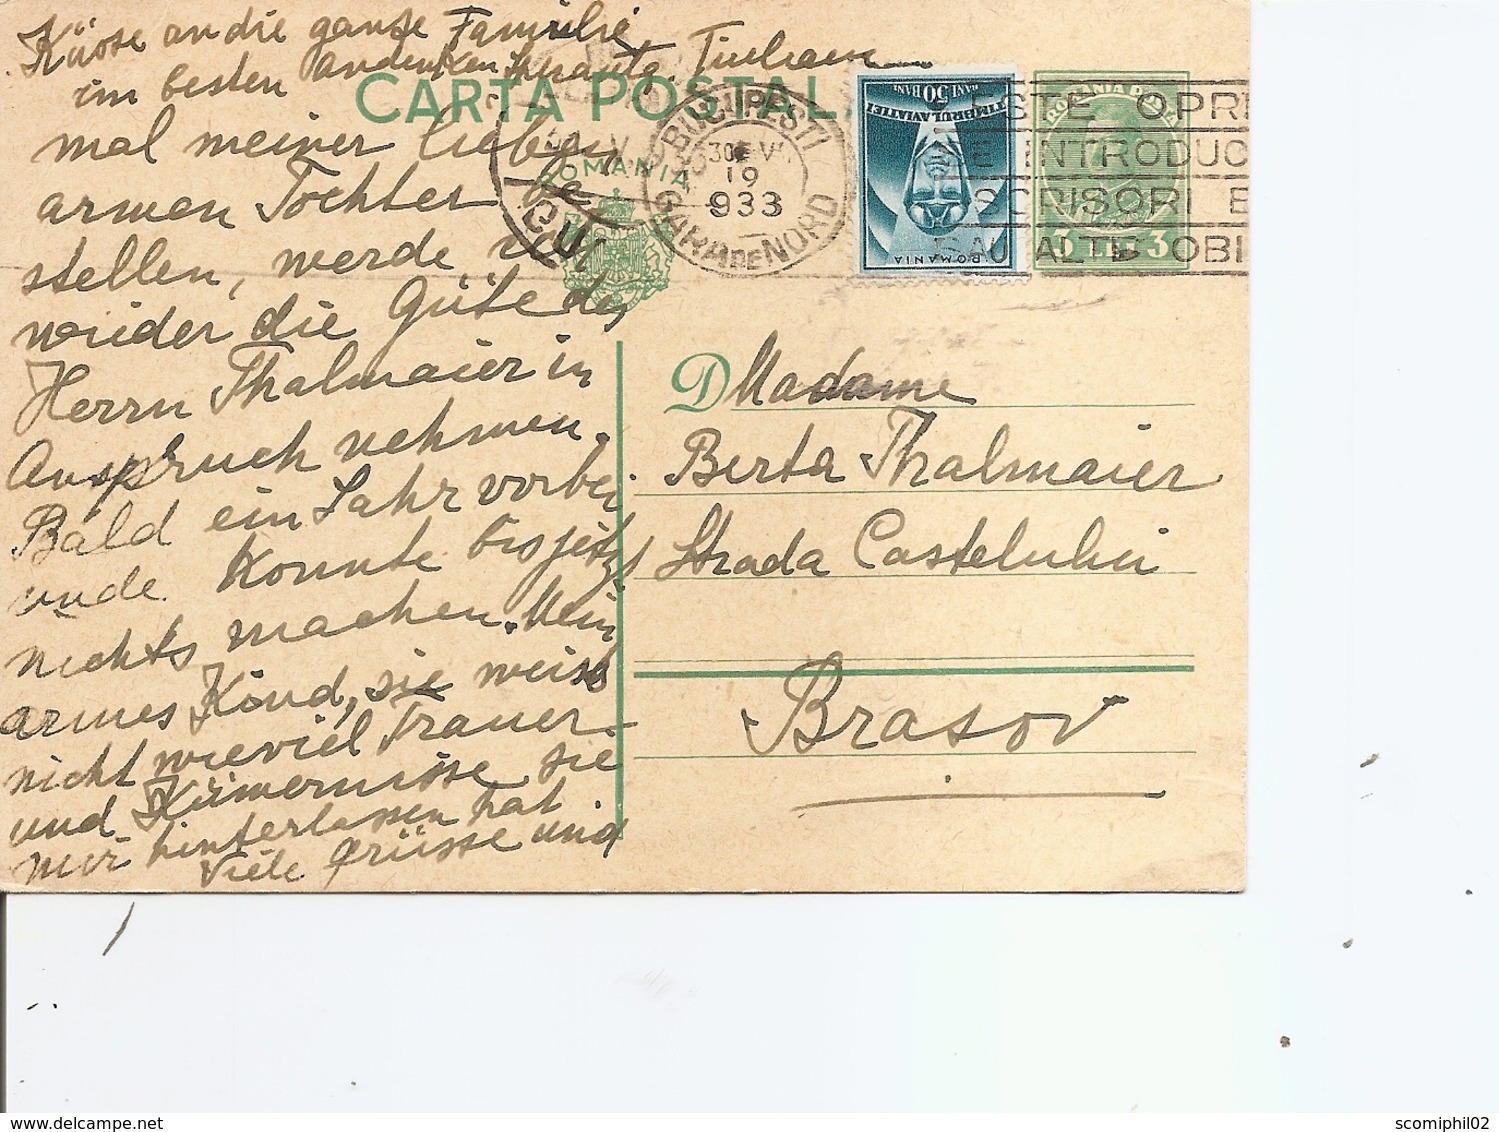 Küsse an die ganze Familie
im besten andenken
CARTA POSTALA
mal meiner lieben
armen Tochter be
stellen, werde
wieder die Güte des
Herrn Thalmaier in
Anspruch nehmen.
Bald ein Jahr vorbei
und Konnte bis jetzt
nichts machen. Mein
armes Kind, sie weiss
nicht wieviel Trauer
und Kümernisse sie
mir hinterlassen hat.
Viele Grüsse und
ROMANIA
BUCUREȘTI
30 V
19
933
GARA DE NORD
TIMBRUL AVIATIEI
BANI 50 BANI
ROMANIA
ESTE OPRI
INTRODUC
SCRISORI
SAU ALTE OBI
ROMANIA POSTA
3 LEI 3
D Madame
Berta Thalmaier
Strada Castelului
Brasov
scomiphil02